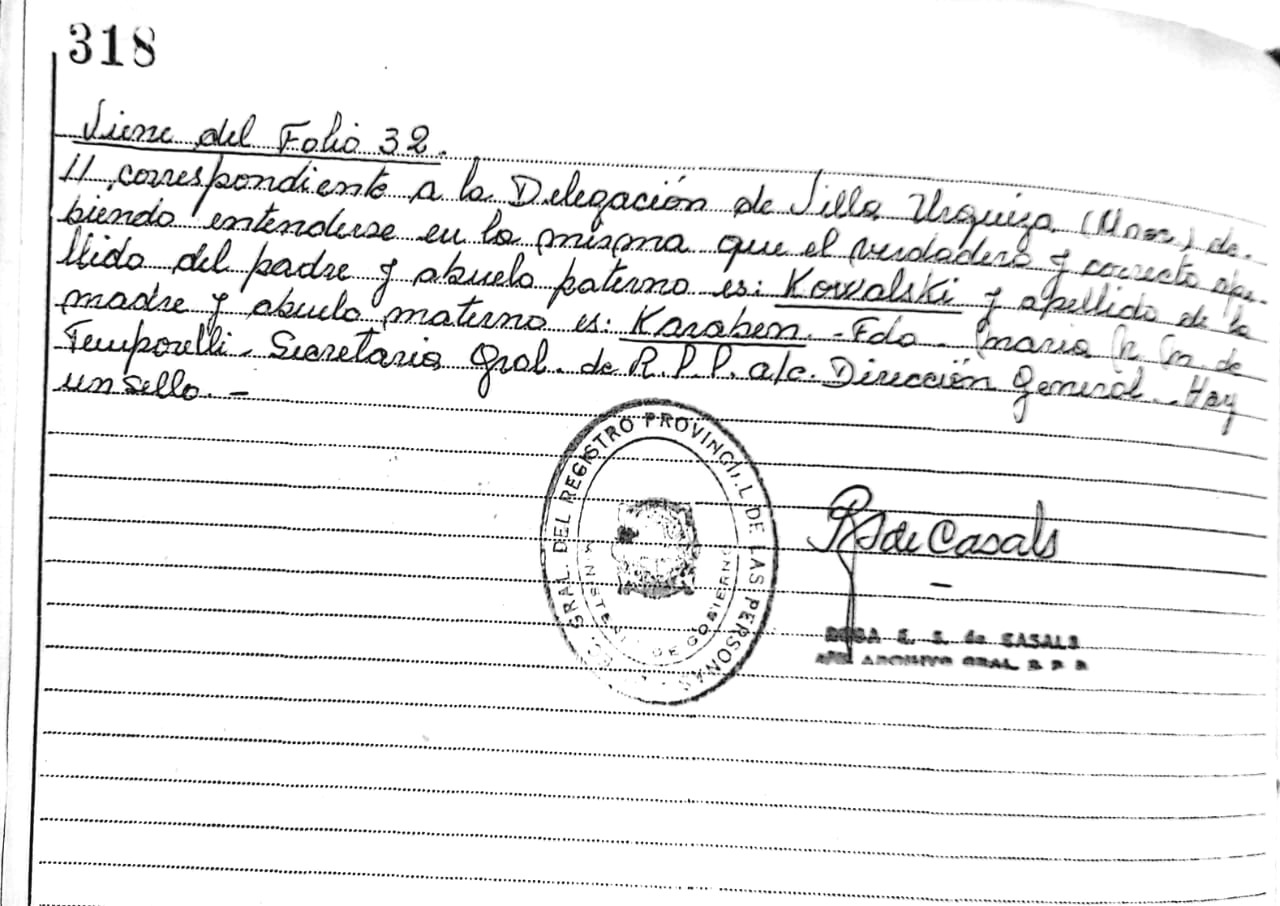 318
Viene del Folio 32.
// correspondiente a la Delegación de Villa Urquiza (Mnes.) de-
biendo entenderse en la misma que el verdadero y correcto ape-
llido del padre y abuelo paterno es: Kowalski y apellido de la
madre y abuelo materno es: Karaben. - Fdo. María de
Temporelli. Secretaria Gral. de R.P.P. a/c. Dirección General. Hay
un sello. -
GRAL. DEL REGISTRO PROVINCIAL DE LAS PERSONAS
DE GOBIERNO
de Casals
S. de CASALS
ARCHIVO GRAL